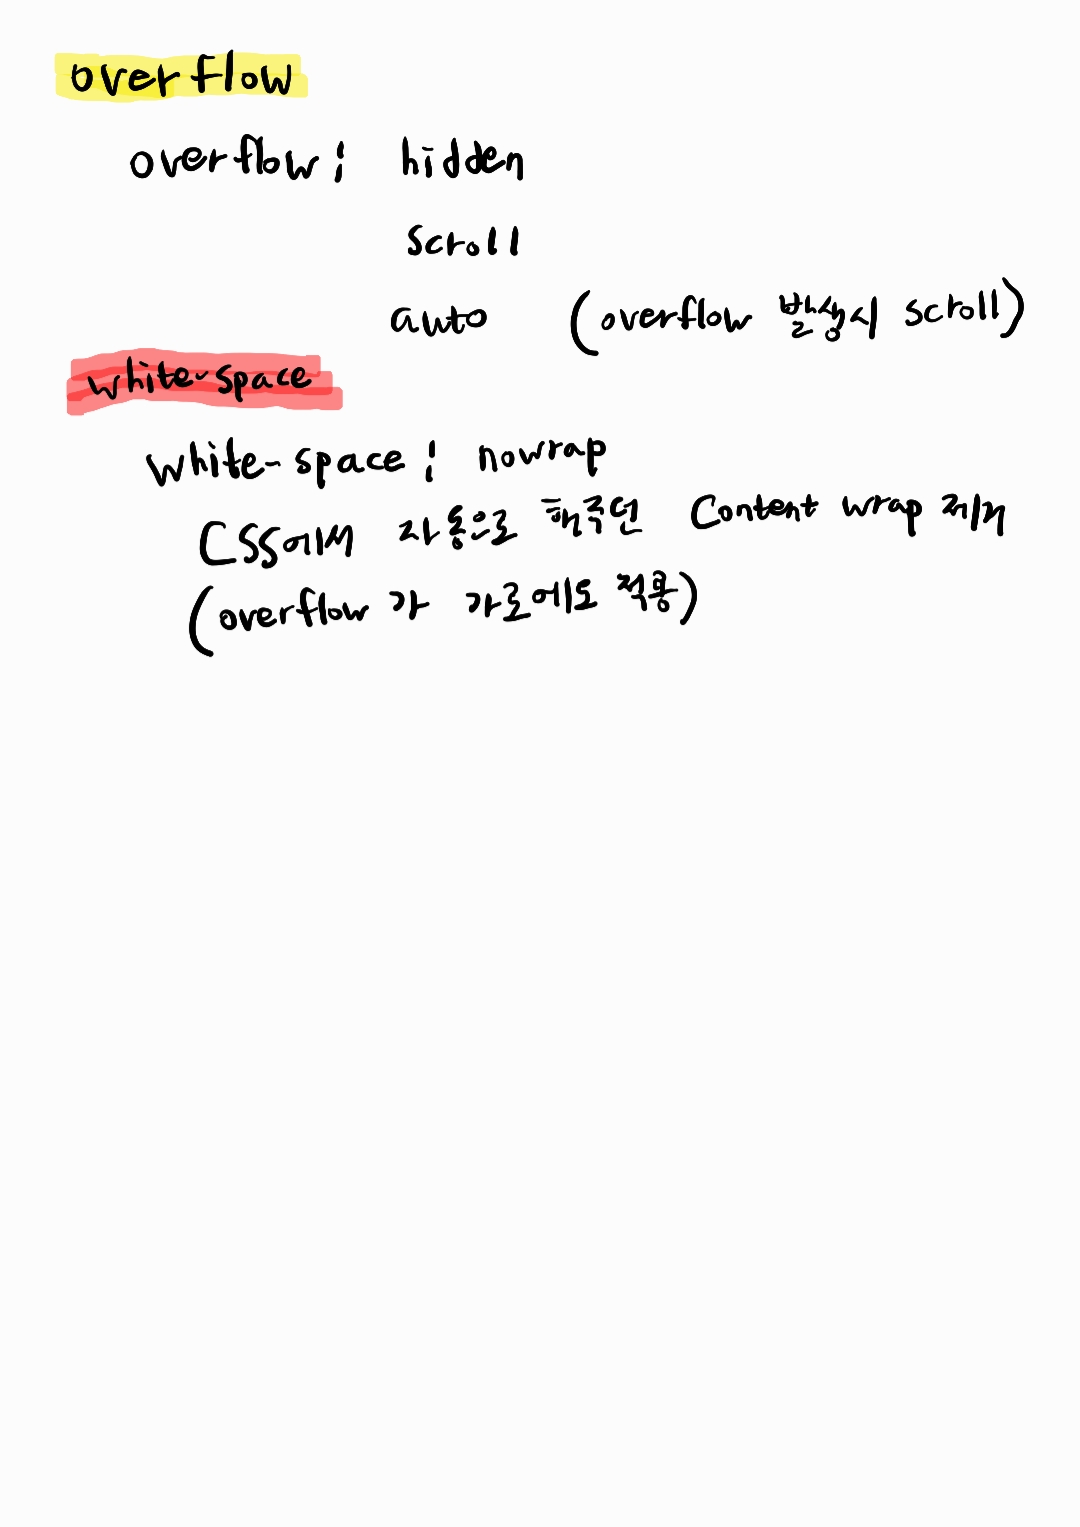 overflow
overflow : hidden
scroll
auto (overflow 발생시 scroll)
white-space
white-space : nowrap
CSS에서 자동으로 해주던 Content wrap 제거
(overflow 가 가로에도 적용)